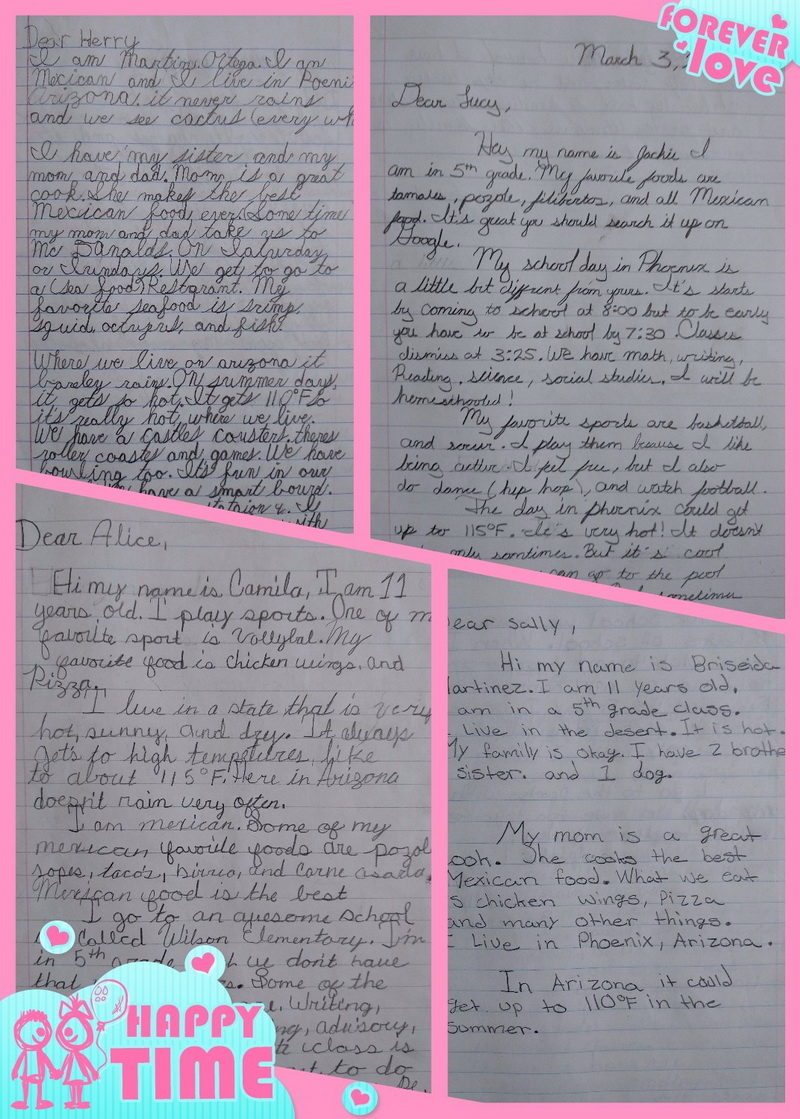 Dear Herry
I am Martin Ortega. I am
Mexican and I live in Poeni
Arizona. it never rains
and we see cactus (every wh
I have my sister and my
mom and dad. Mom is a great
cook. She makes the best
Mexican food ever. Some time
my mom and dad take us to
Mc Danalds. On Saturday
or Sundays. We get to go to
a (sea food) Restarant. My
favorite seafood is srimp,
squid, octupus, and fish.
Where we live on arizona it
bareley rains. On summer days,
it gets so hot. It gets 110°F so
it's really hot where we live.
We have a castles cousters. theres
roller coasts and games. We have
bowling too. Its fun in our
have a smart board.
& I
with
FOREVER
love
March 3,
Dear Lucy,
Hey my name is Jackie I
am in 5th grade. My favorite foods are
tamales, pozole, filibertos, and all Mexican
food. It's great you should search it up on
Google.
My school day in Phoenix is
a little bit diffrent from yours. It's starts
by coming to school at 8:00 but to be early
you have to be at school by 7:30. Classes
dismiss at 3:25. We have math, writing,
Reading, science, social studies. I will be
homeschooled!
My favorite sports are basketball,
and soccer. I play them because I like
being active. I feel free, but I also
do dance (hip hop), and watch football.
The day in phoenix could get
up to 115°F. It's very hot! It doesn't
only somtimes. But it's cool
can go to the pool
sometimes
Dear Alice,
Hi my name is Camila, I am 11
years old. I play sports. One of m
favorite sport is Vollybal. My
favorite food is chicken wings, and
Pizza.
I live in a state that is very
hot, sunny, and dry. It always
gets to high temptures, like
to about 115°F. Here in Arizona
doesn't rain very often.
I am mexican. Some of my
mexican favorite foods are pozol
sopes, tacos, birria, and carne asada.
Mexican food is the best
I go to an awesome school
called Wilson Elementary. I'm
in 5th grade we dont have
that Some of the
are, Writing,
advisory,
class is
to do
De
ear sally,
Hi my name is Briseida
artinez. I am 11 years old.
am in a 5th grade class.
Live in the desert. It is hot.
My family is okay. I have 2 brothe
sister. and 1 dog.
My mom is a great
ook. She cooks the best
Mexican food. What we eat
s chicken wings, Pizza
and many other things.
I Live in Phoenix, Arizona.
In Arizona it could
get up to 110°F in the
summer.
HAPPY
TIME